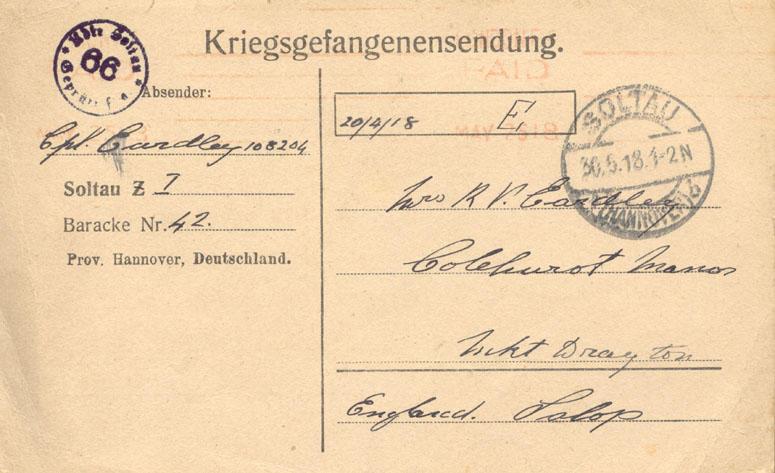 Kriegsgefangenensendung.
Soltau
66
Geprüft
Absender:
Cpl. Eardley 108204
Soltau Z I
Baracke Nr. 42.
Prov. Hannover, Deutschland.
20/4/18 E,
SOLTAU
30.5.18.1-2N
(HANNOVER) b
Mrs R V. Eardley
Colehurst Manor
Mkt Drayton
England. Salop